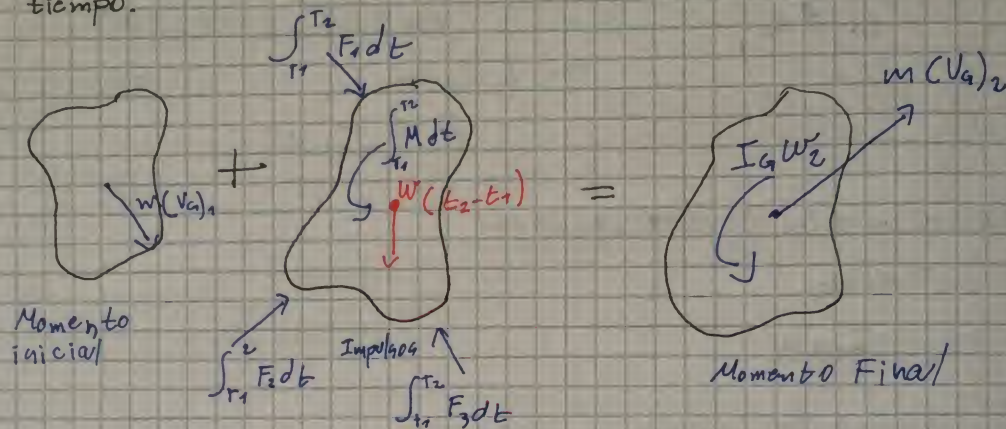 tiempo.
∫_{T1}^{T2} F₁dt
m(V_G)₂
∫_{T1}^{T2} M dt
I_G W₂
+
m(V_G)₁
W(t₂-t₁)
=
Momento
inicial
∫_{T1}^{2} F₂dt
Impulsos
∫_{t1}^{T2} F₃dt
Momento Final